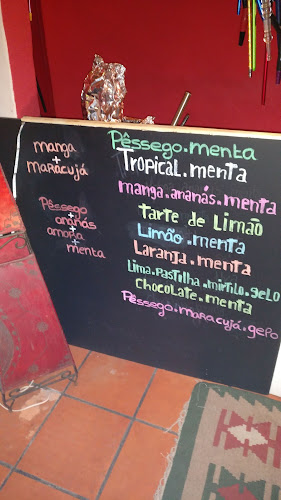 manga
+
maracujá
Pêssego
+
ananás
+
amora
+
menta
Pêssego.menta
Tropical.menta
manga.ananás.menta
Tarte de Limão
Limão.menta
Laranja.menta
Lima.Pastilha.mirtilo.gelo
Chocolate.menta
Pêssego.maracujá.gelo